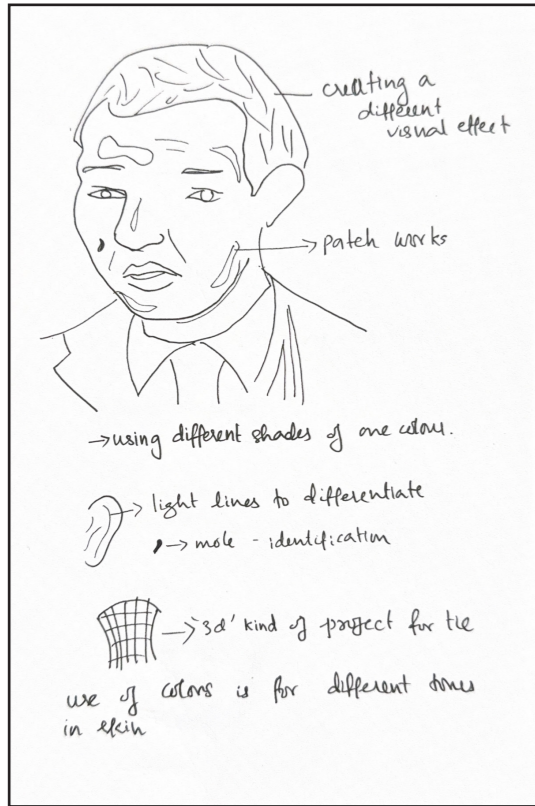 creating a
different
visual effect
patch works
using different shades of one colour.
light lines to differentiate
mole - identification
'3d' kind of project for tie
use of colors is for different tones
in skin